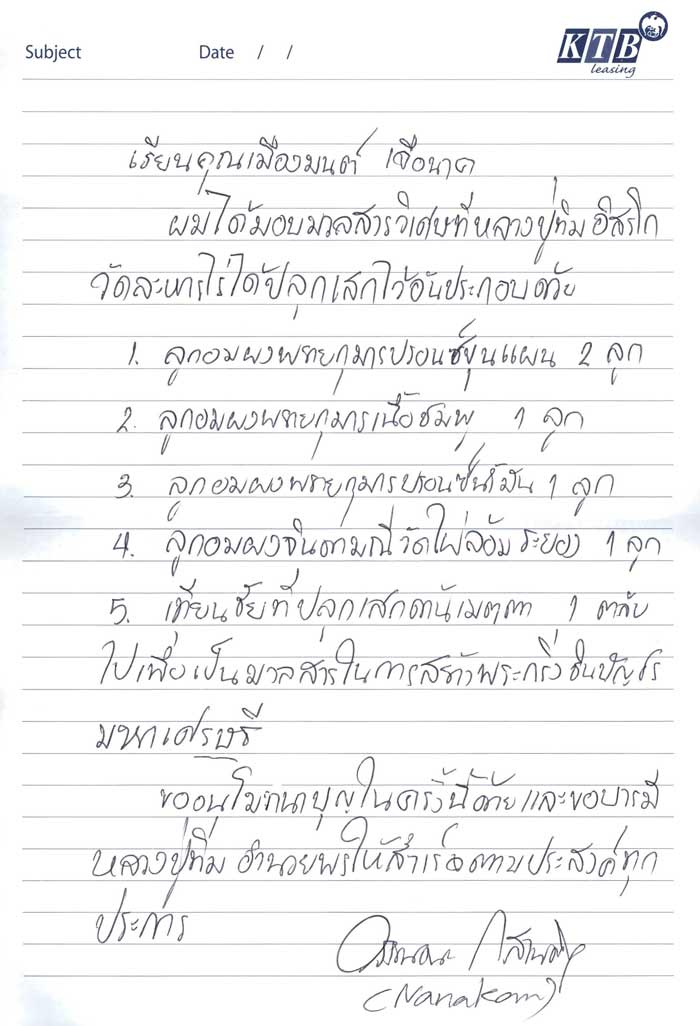 Subject Date / /
KTB
leasing
เรียนคุณเมืองมนต์ เจือนาค
ผมได้มอบมวลสารวิเศษที่หลวงปู่ทิม อิสริโก
วัดละหารไร่ได้ปลุกเสกไว้อันประกอบด้วย
1. ลูกอมผงพรายกุมารบรอนซ์ขุนแผน 2 ลูก
2. ลูกอมผงพรายกุมารเนื้อชมพู 1 ลูก
3. ลูกอมผงพรายกุมารบรอนซ์น้ำมัน 1 ลูก
4. ลูกอมผงจินดามณีวัดไผ่ล้อม ระยอง 1 ลูก
5. เทียนชัยที่ปลุกเสกด้านเมตตา 1 ตลับ
ไปเพื่อเป็นมวลสารในการสร้างพระกริ่งชินบัญชร
มหาเศรษฐี
ขออนุโมทนาบุญในครั้งนี้ด้วยและขอบารมี
หลวงปู่ทิม อำนวยพรให้สำเร็จตามประสงค์ทุก
ประการ
(Nanakom)